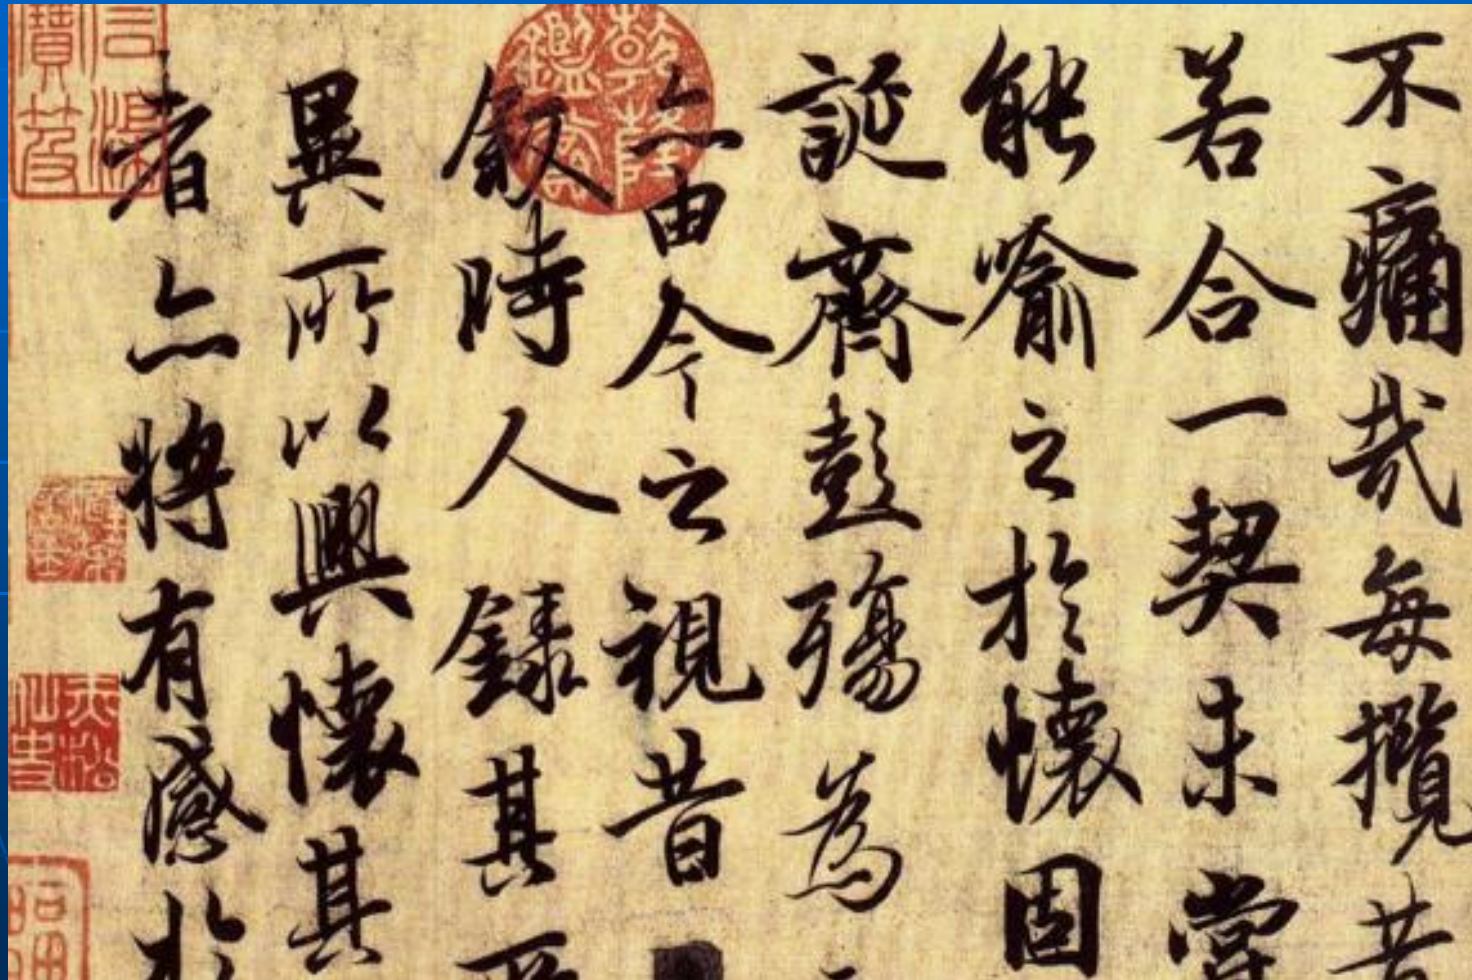 不痛哉每攬昔
若合一契未嘗
能喻之於懷固
誕齊彭殤為
亦由今之視昔
叙時人錄其所
異所以興懷其
者亦將有感於
乾隆鑑賞
石渠寶笈